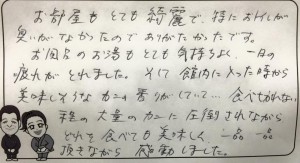 お部屋もとても綺麗で、特におトイレが
臭いがなかったのでありがたかったです。
お風呂のお湯もとても気持ちよく、一日の
疲れがとれました。そして館内に入った時から
美味しそうなカニの香りがしていて…食べきれない
程の大量のカニに圧倒されながら
どれを食べても美味しく一品一品
頂きながら感動しました。